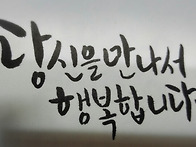 당신을 만나서
행복합니다